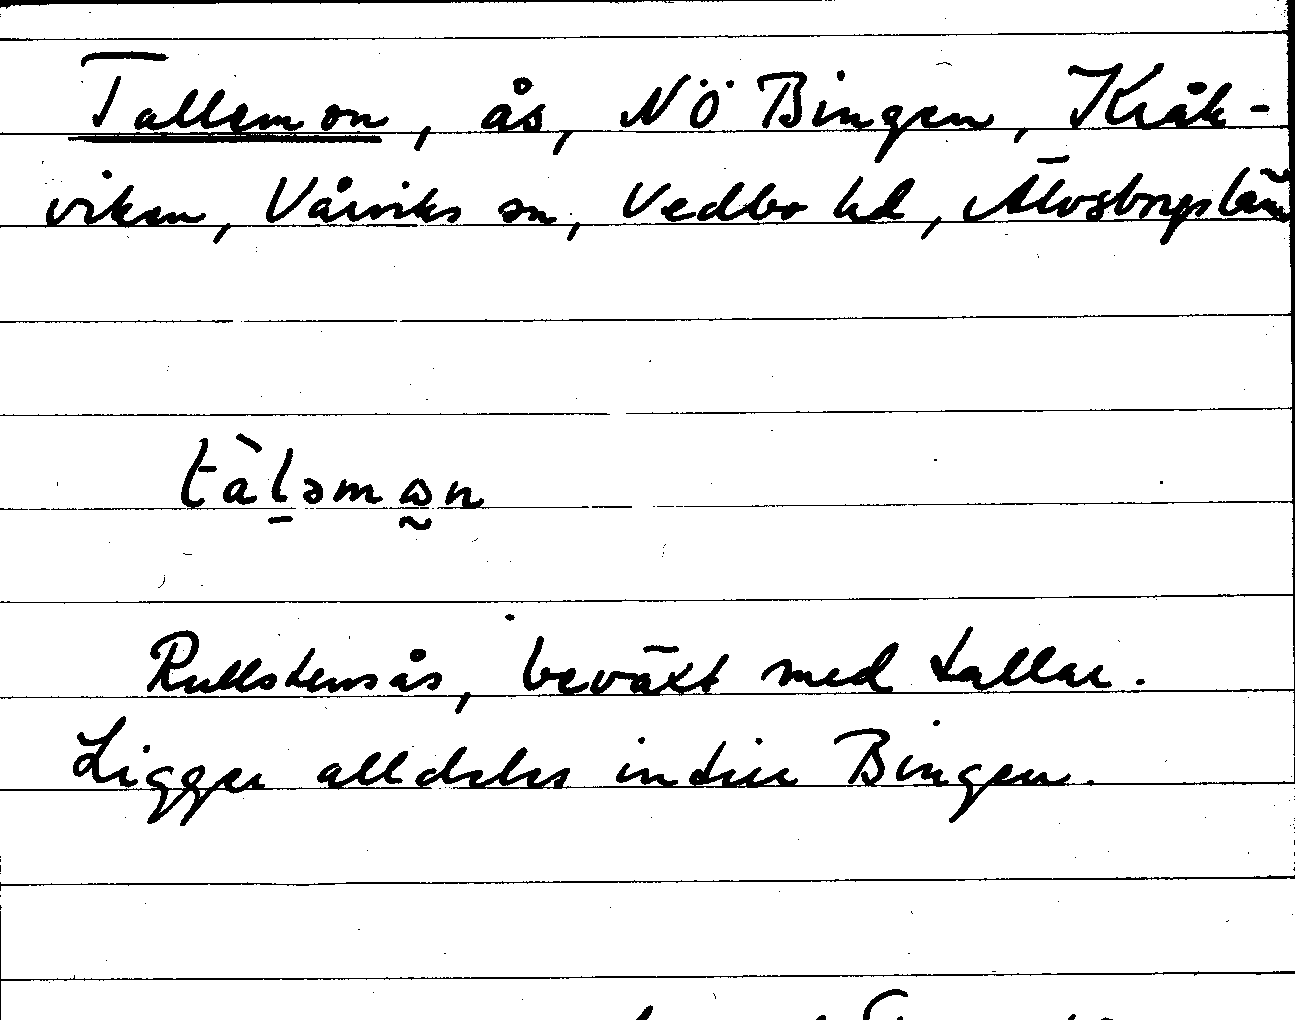 Tallemon, ås, NÖ Bingen, Kråk-
viken, Vårviks sn, Vedbo hd, Älvsborgs län
tàl̠əmɷ̰n
Rullstensås, beväxt med tallar.
Ligger alldeles intill Bingen.